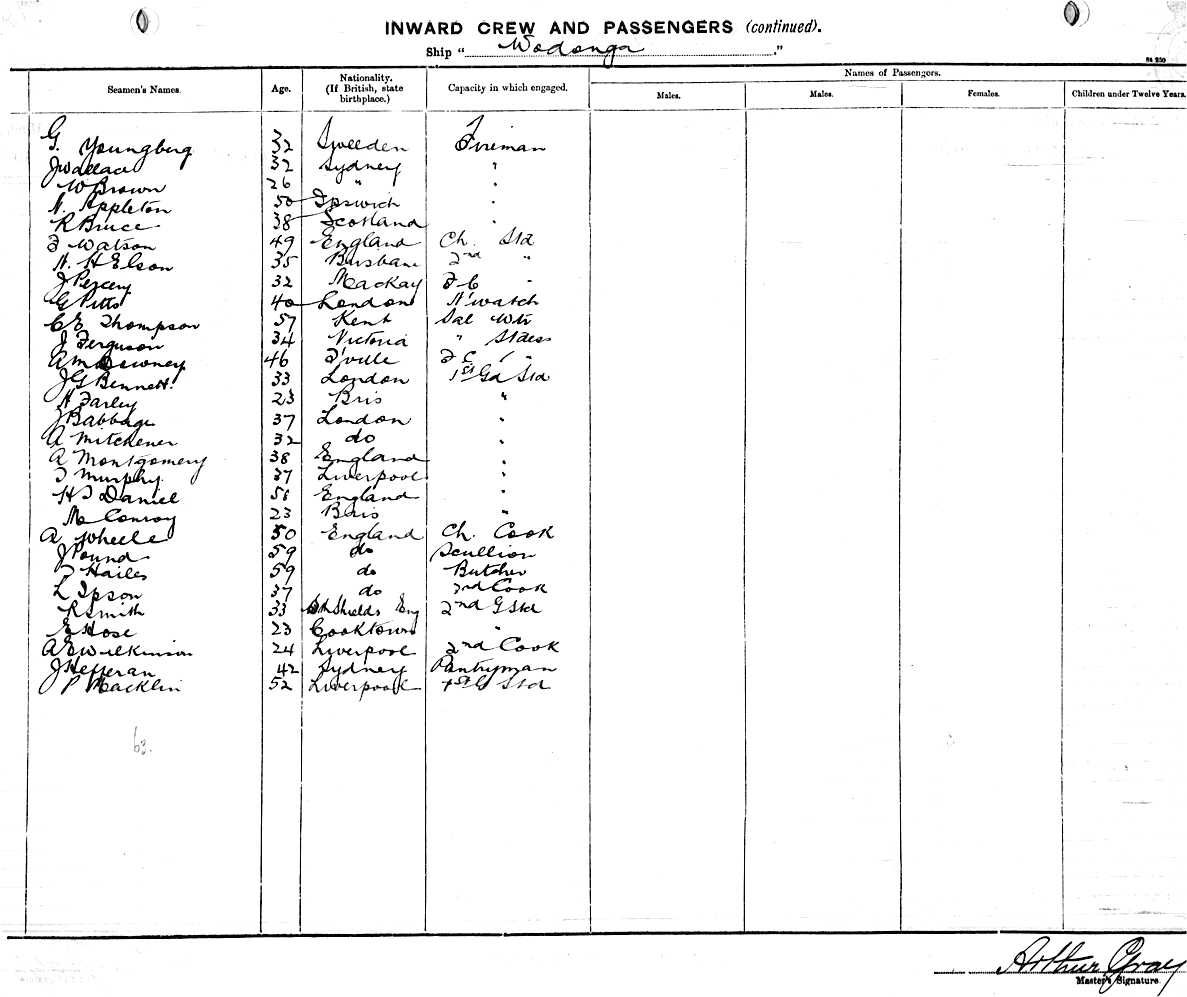 INWARD CREW AND PASSENGERS (continued).
Ship "Wodonga"
Seamen's Names. Age. Nationality. (If British, state birthplace.) Capacity in which engaged. Names of Passengers.
Males. Males. Females. Children under Twelve Years.
G. Youngberg 32 Sweeden Fireman
J Wallace 32 Sydney "
W Brown 26 " "
H. Appleton 50 Ipswich "
R Bruce 38 Scotland "
F Watson 49 England Ch. Std
H. H Elson 35 Brisbane 2nd "
J Percey 32 Mackay F C "
G Pitts 40 London N'watch
C E Thompson 57 Kent Sal Wtr
J Ferguson 34 Victoria " Stdess
A M Downey 46 T'ville F C "
J G Bennett. 33 London 1st Gd Std
H Farley 23 Bris "
J Babbage 37 London "
A Mitchener 32 do "
A Montgomery 38 England "
T Murphy. 37 Liverpool "
H J Daniel 51 England "
M Conroy 23 Bris "
A Wheele 50 England Ch. Cook
J Pound 59 do Scullion
T Hailes 59 do Butcher
L Ipson 37 do 3rd Cook
R Smith 33 Sth Shields Eng 2nd G Std
E Hose 23 Cooktown "
A E Wilkinson 24 Liverpool 2nd Cook
J Hefferan 42 Sydney Pantryman
P Macklin 52 Liverpool 1st G Std
63.
Arthur Gray
Master's Signature.